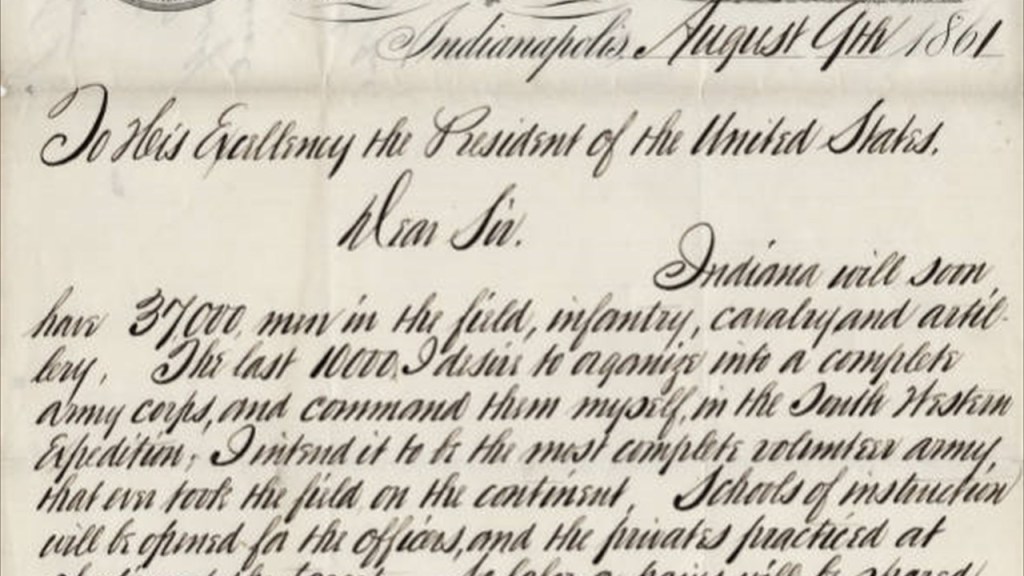 Indianapolis, August 9th 1861
To His Excellency the President of the United States.
Dear Sir.
Indiana will soon,
have 37000, men in the field, infantry, cavalry and artil-
lery. The last 10000, I desire to organize into a complete
army corps, and command them myself, in the South Western
Expedition, I intend it to be the most complete volunteer army,
that ever took the field on the continent, Schools of instruction
will be opened for the officers, and the privates practiced at
will be spared